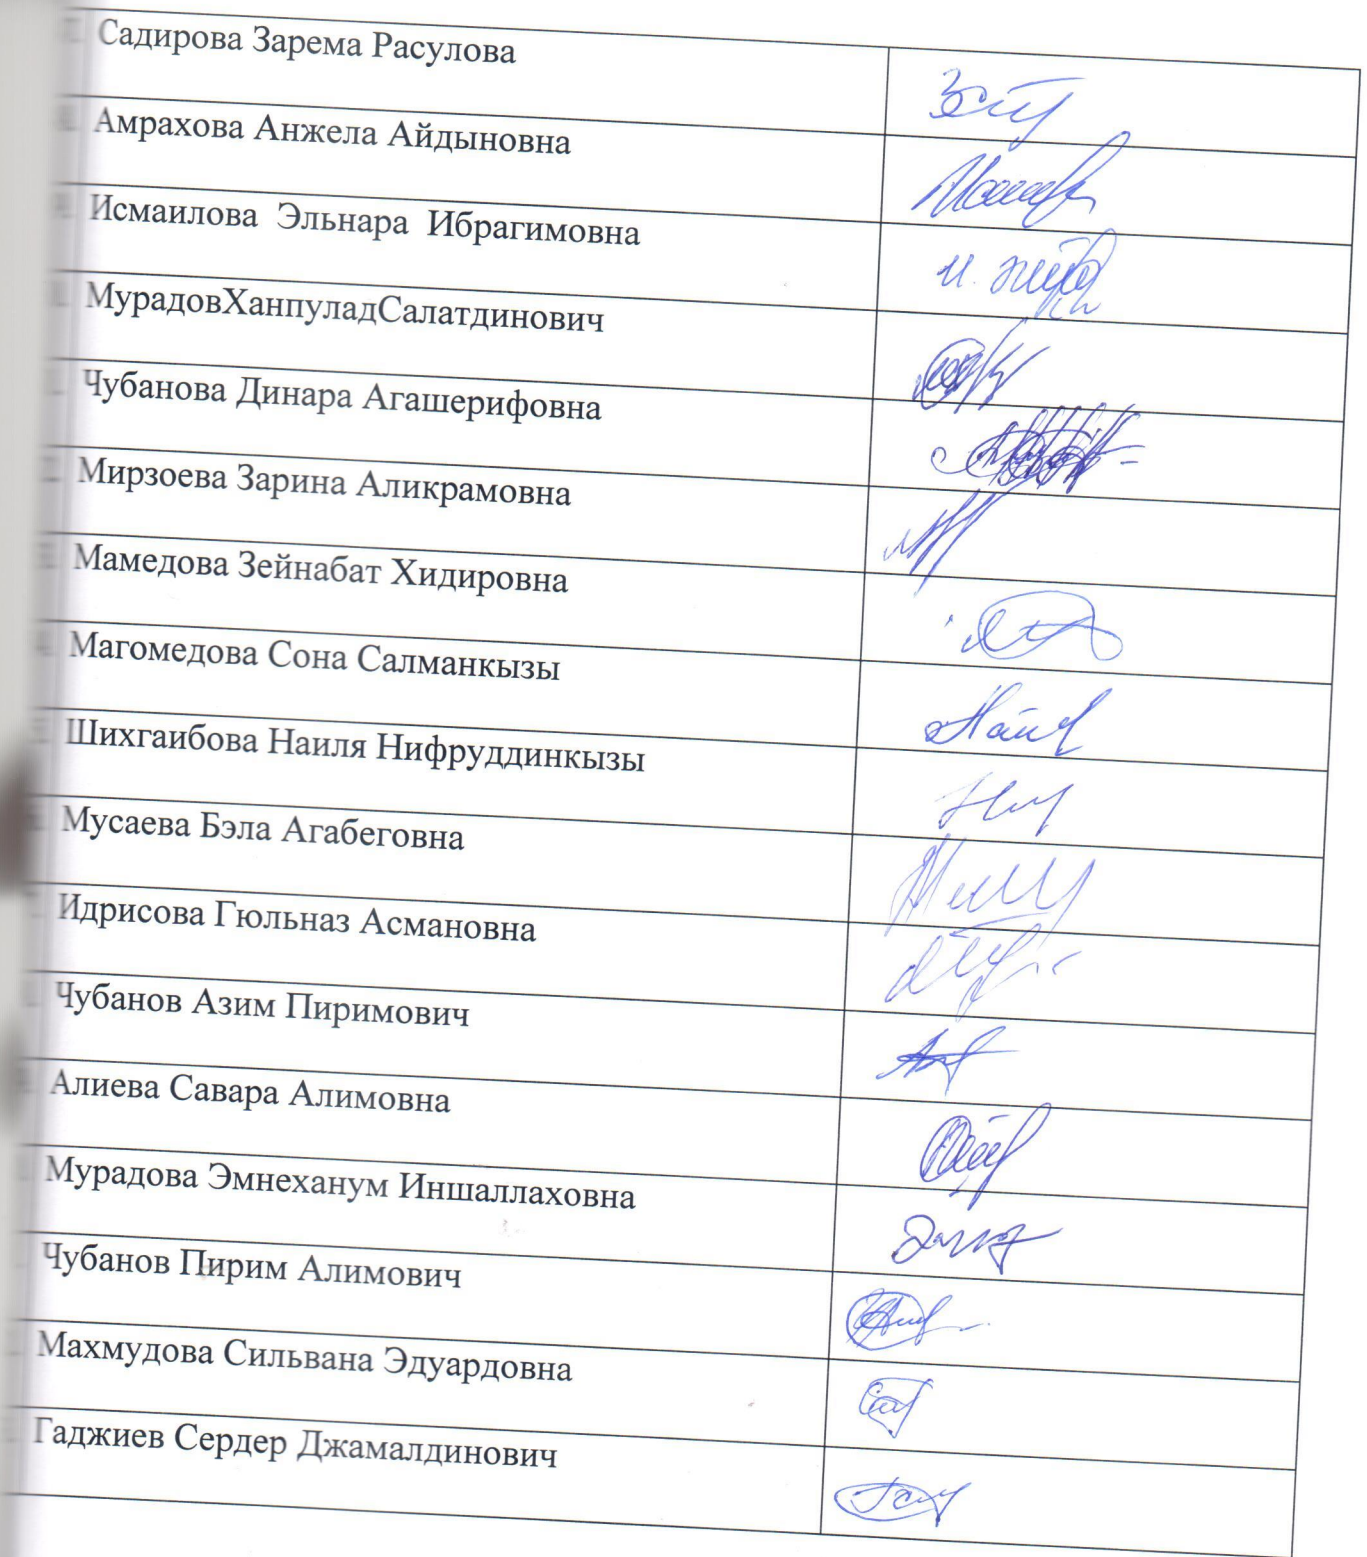 Садирова Зарема Расулова
Амрахова Анжела Айдыновна
Исмаилова Эльнара Ибрагимовна
МурадовХанпуладСалатдинович
Чубанова Динара Агашерифовна
Мирзоева Зарина Аликрамовна
Мамедова Зейнабат Хидировна
Магомедова Сона Салманкызы
Шихгаибова Наиля Нифруддинкызы
Мусаева Бэла Агабеговна
Идрисова Гюльназ Асмановна
Чубанов Азим Пиримович
Алиева Савара Алимовна
Мурадова Эмнеханум Иншаллаховна
Чубанов Пирим Алимович
Махмудова Сильвана Эдуардовна
Гаджиев Сердер Джамалдинович